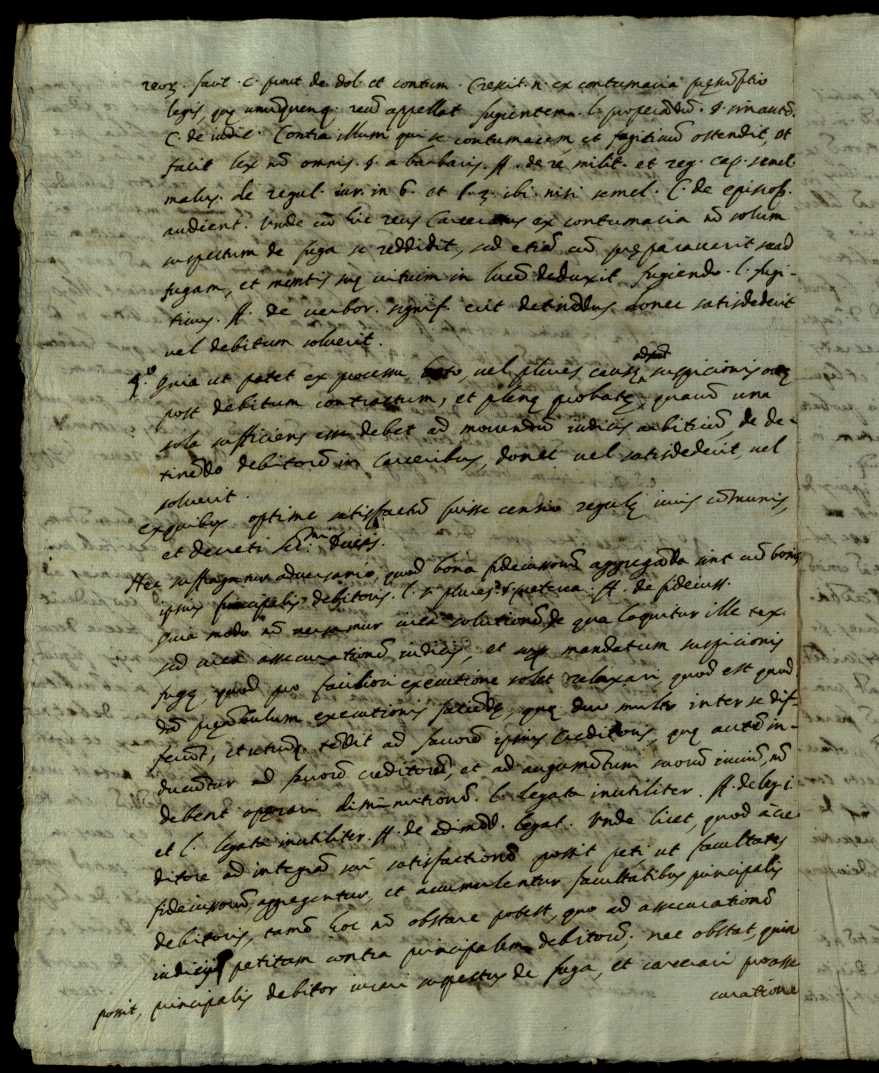 reoꝝ. facit. c. prout de dol. et contum. Crescit. n. ex contumacia pręsumptio
legis, quę unumquenq. reũ appellat fugientem. l. properandũ. §. sin autẽ.
C. de iudic. Contra illum qui se contumacem, et fugitiuũ ostendit, ut
facit lex nõ omnis. §. a barbaris. ff. de re milit. et reg. cap. semel
malus. de regul. iur. in 6. et l. 3. ibi nisi semel. C. de episcop.
audient. Vnde cũ hic reus Carceratus ex contumacia nõ solum
suspectum de fuga se reddidit, sed etiã cũ pręparauerit se ad
fugam, et mentis suę uitium in lucẽ deduxit fugiendo. l. fugi-
tiuus. ff. de uerbor. signif. erit detinẽdus donec satisdederit
uel debitum soluerit.
Quia ut patet ex processu, uel plures causę adsunt suspicionis ortę
post debitum contractum, et plenę probatę, quarũ una
sola sufficiens esse debet ad mouendũ iudicis arbitriũ, de de-
tinẽdo debitorẽ in Carceribus, donec uel satisdederit, uel
soluerit.
ex quibus optime satisfactũ fuisse censeo regulę iuris cõmunis,
et decreti Ser.mi Ducis.
Nec suffragatur aduersario, quod bona fideiussorũ aggregãda sint cũ bonis
ipsius principalis debitoris. l. si plures. § pręterea. ff. de fideiuss.
quia modo nõ uersamur circa solutionẽ, de qua loquitur ille tex.
sed circa assecurationẽ iudicij, et mandatum suspicionis
fugę, quod pro faciliori executione solet relaxari, quod est quod
dã pręãbulum executionis faciẽdę, quę duo multũ inter se dif-
ferũt, et utrũq. tẽdit ad fauorẽ ipsius Creditoris, quę autẽ in-
ducuntur ad fauorẽ creditorũ, et ad augumẽtum suorũ iuriũ, nõ
debent operari diminutionẽ. l. legata inutiliter. ff. de leg. i.
et l. legata inutiliter. ff. de adimẽd. legat. Vnde licet, quod a cre
ditore ad integrã sui satisfactionẽ possit peti ut facultates
fideiussorũ aggregentur, et accumulentur facultatibus principalis
debitoris, tamẽ hoc nõ obstare potest, quo ad assecurationẽ
iudicij petitam contra principalem debitorẽ. nec obstat, quin
possit, principalis debitor iurari suspectus de fuga, et carcerari pro asse
curatione